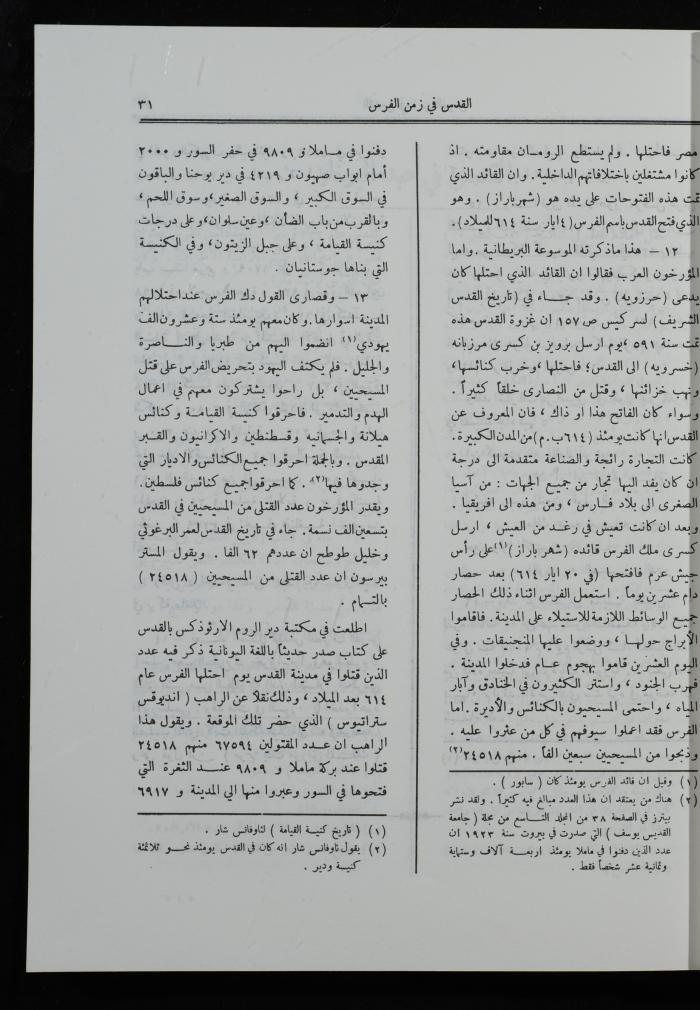 القدس في زمن الفرس
٣١
مصر فاحتلها . ولم يستطع الرومان مقاومته . اذ
كانوا مشتغلين باختلافاتهم الداخلية . وان القائد الذي
تمت هذه الفتوحات على يده هو (شهرباراز) . وهو
الذي فتح القدس باسم الفرس (٤ ايار سنة ٦١٤ للميلاد).
١٢ – هذا ما ذكرته الموسوعة البريطانية . واما
المؤرخون العرب فقالوا ان القائد الذي احتلها كان
يدعى (حرزويه) . وقد جاء في (تاريخ القدس
الشريف) لسركيس ص ١٥٧ ان غزوة القدس هذه
تمت سنة ٥٩١ ، يوم ارسل برويز بن كسرى مرزبانه
(خسرويه) الى القدس ؛ فاحتلها ، وخرب كنائسها ،
ونهب خزائنها ، وقتل من النصارى خلقاً كثيراً .
وسواء كان الفاتح هذا او ذاك ، فان المعروف عن
القدس انها كانت يومئذ (٦١٤ ب . م) من المدن الكبيرة .
كانت التجارة رائجة والصناعة متقدمة الى درجة
ان كان يفد اليها تجار من جميع الجهات : من آسيا
الصغرى الى بلاد فارس ، ومن هذه الى افريقيا .
وبعد ان كانت تعيش في رغد من العيش ، ارسل
كسرى ملك الفرس قائده (شهر باراز) (١) على رأس
جيش عرم فافتحها (في ٢٠ ايار ٦١٤) بعد حصار
دام عشرين يوماً . استعمل الفرس اثناء ذلك الحصار
جميع الوسائط اللازمة للاستيلاء على المدينة . فاقاموا
الأبراج حولها ، ووضعوا عليها المنجنيقات . وفي
اليوم العشرين قاموا بهجوم عام فدخلوا المدينة .
فهرب الجنود ، واستتر الكثيرون في الخنادق وآبار
المياه ، واحتمى المسيحيون بالكنائس والأديرة . اما
الفرس فقد اعملوا سيوفهم في كل من عثروا عليه .
وذبحوا من المسيحيين سبعين الفاً . منهم ٢٤٥١٨ (٢)
(١) وقيل ان قائد الفرس يومئذ كان ( سابور ) .
(٢) هناك من يعتقد ان هذا العدد مبالغ فيه كثيراً . ولقد نشر
بيترز في الصفحة ٣٨ من المجلد التاسع من مجلة ( جامعة
القديس يوسف ) التي صدرت في بيروت سنة ١٩٢٣ ان
عدد الذين دفنوا في ماملا يومئذ اربعة آلاف وستماية
وثمانية عشر شخصاً فقط .
دفنوا في ماملا و ٩٨٠٩ في حفر السور و ٢٠٠٠
أمام ابواب صهيون و ٤٢١٩ في دير يوحنا والباقون
في السوق الكبير ، والسوق الصغير ، وسوق اللحم ،
وبالقرب من باب الضأن ، وعين سلوان ، وعلى درجات
كنيسة القيامة ، وعلى جبل الزيتون ، وفي الكنيسة
التي بناها جوستانيان .
١٣ – وقصارى القول دك الفرس عند احتلالهم
المدينة اسوارها . وكان معهم يومئذ ستة وعشرون الف
يهودي (١) انضموا اليهم من طبريا والناصرة
والجليل . فلم يكتف اليهود بتحريض الفرس على قتل
المسيحيين ، بل راحوا يشتركون معهم في اعمال
الهدم والتدمير . فاحرقوا كنيسة القيامة وكنائس
هيلانة والجسمانيه وقسطنطين والاكرانيون والقبر
المقدس . وبالجملة احرقوا جميع الكنائس والاديار التي
وجدوها فيها (٢) . كما احرقوا جميع كنائس فلسطين .
ويقدر المؤرخون عدد القتلى من المسيحيين في القدس
بتسعين الف نسمة . جاء في تاريخ القدس لعمر البرغوثي
وخليل طوطح ان عددهم ٦٢ الفا . ويقول المستر
بيرسون ان عدد القتلى من المسيحيين ( ٢٤٥١٨ )
بالتمام .
اطلعت في مكتبة دير الروم الارثوذكس بالقدس
على كتاب صدر حديثاً باللغة اليونانية ذكر فيه عدد
الذين قتلوا في مدينة القدس يوم احتلها الفرس عام
٦١٤ بعد الميلاد ، وذلك نقلاً عن الراهب ( انديوقس
ستراتيوس ) الذي حضر تلك الموقعة . ويقول هذا
الراهب ان عدد المقتولين ٦٧٥٩٤ منهم ٢٤٥١٨
قتلوا عند بركة ماملا و ٩٨٠٩ عند الثغرة التي
فتحوها في السور وعبروا منها الى المدينة و ٦٩١٧
(١) ( تاريخ كنيسة القيامة ) لثاوفانس شار .
(٢) يقول ثاوفانس شار انه كان في القدس يومئذ نحو ثلاثمئة
كنيسة ودير .